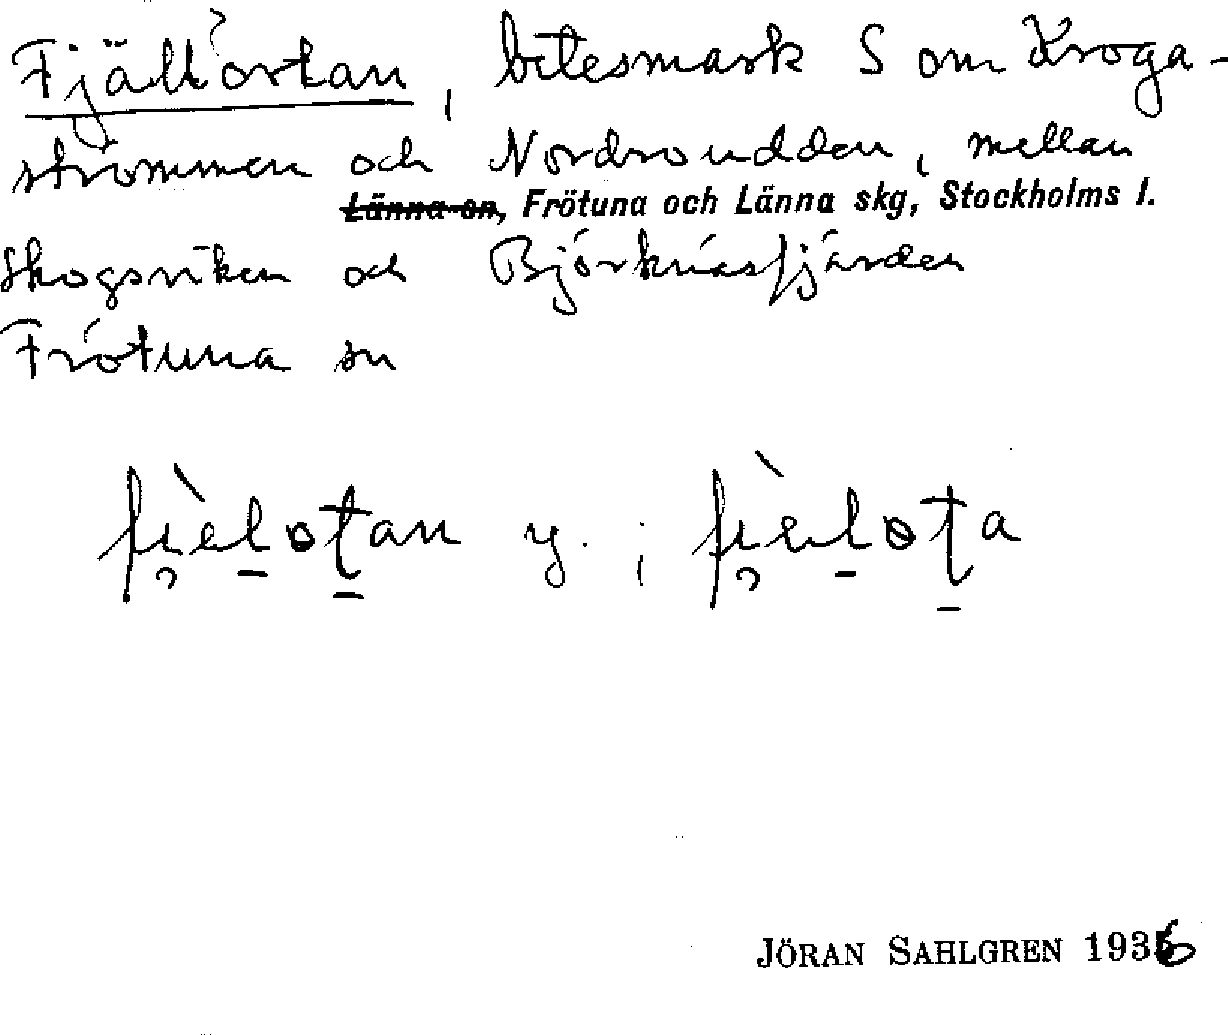 Fjällortan, betesmark S om Kroga-
strömmen och Nordroudden, mellan
Länna-on, Frötuna och Länna skg, Stockholms l.
Skogsviken och Björknäsfjärden
Frötuna sn
y. ;
JÖRAN SAHLGREN 1936